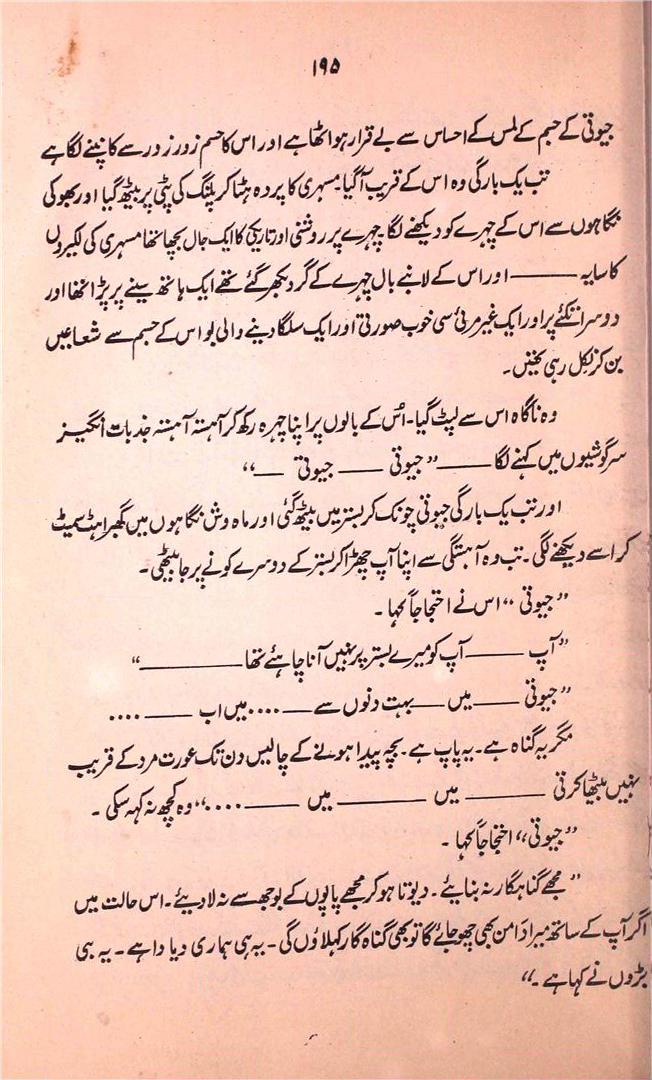 ۱۹۵
جیوتی کے جسم کے لمس کے احساس سے بے قرار ہو اٹھا ہے اور اس کا جسم زور زور سے کانپنے لگا ہے
تب یک بارگی وہ اس کے قریب آگیا۔ مسہری کا پردہ ہٹا کر پلنگ کی پٹی پر بیٹھ گیا اور بھوکی
نگاہوں سے اس کے چہرے کو دیکھنے لگا چہرے پر روشنی اور تاریکی کا ایک جال بچھا تھا مسہری کی لکیروں
کا سایہ ——— اور اس کے لانبے بال چہرے کے گرد بکھر گئے تھے ایک ہاتھ سینے پر پڑا تھا اور
دوسرا تکئے پر اور ایک غیر مرئی سی خوب صورتی اور ایک سلگا دینے والی لو اس کے جسم سے شعاعیں
بن کر نکل رہی تھیں۔
وہ ناگاہ اس سے لپٹ گیا۔ اُس کے بالوں پر اپنا چہرہ رکھ کر آہستہ آہستہ جذبات انگیز
سرگوشیوں میں کہنے لگا ——— ”جیوتی —— جیوتی —“
اور تب یک بارگی جیوتی چونک کر بستر میں بیٹھ گئی اور ماہ وش نگاہوں میں گھبراہٹ سمیٹ
کر اسے دیکھنے لگی۔ تب وہ آہستگی سے اپنا آپ چھڑا کر بستر کے دوسرے کونے پر جا بیٹھی۔
”جیوتی“ اس نے احتجاجاً کہا۔
”آپ ——— آپ کو میرے بستر پر نہیں آنا چاہئے تھا ————“
”جیوتی —— میں —— بہت دنوں سے —.... میں اب —— ....
مگر یہ گناہ ہے۔ یہ پاپ ہے۔ بچہ پیدا ہونے کے چالیس دن تک عورت مرد کے قریب
نہیں بیٹھا کرتی ——— میں ——— میں ——— ....“ وہ کچھ نہ کہہ سکی۔
”جیوتی“ احتجاجاً کہا۔
”مجھے گناہگار نہ بنایئے۔ دیوتا ہو کر مجھے پاپوں کے بوجھ سے نہ لادیئے۔ اس حالت میں
اگر آپ کے ساتھ میرا دامن بھی چھو جائے گا تو بھی گناہ گار کہلاؤں گی۔ یہ ہی ہماری دیا دا ہے۔ یہ ہی
بڑوں نے کہا ہے۔“